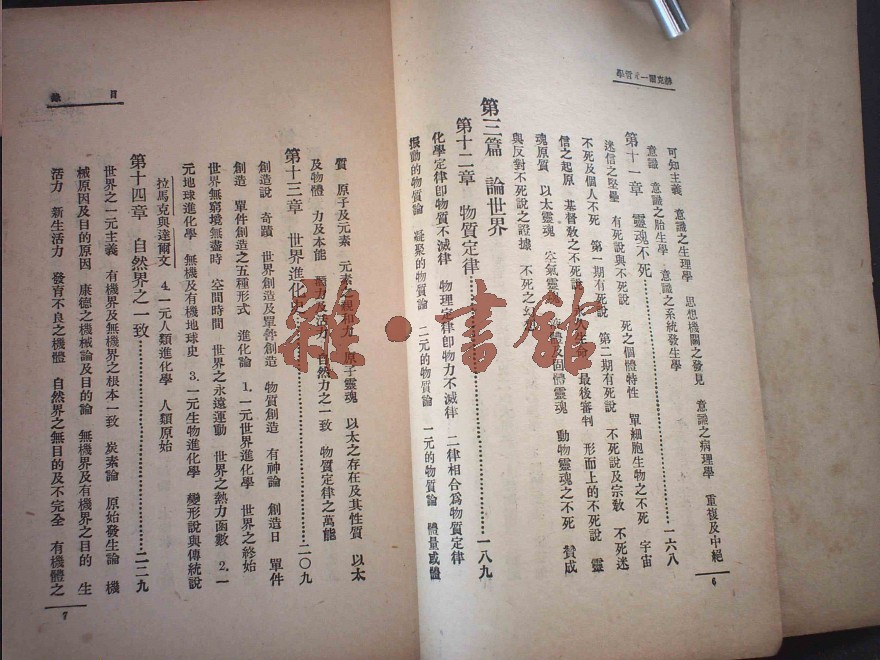 赫克爾一元哲學
可知主義 意識之生理學 思想機關之發見 意識之病理學 重複及中絕
意識 意識之胎生學 意識之系統發生學
第十一章 靈魂不死……一六八
迷信之堅壘 有死說與不死說 死之個體特性 單細胞生物之不死 宇宙
不死及個人不死 第一期有死說 第二期有死說 不死說及宗教 不死迷
信之起原 基督教之不死說 人生命 最後審判 形而上的不死說 靈
魂原質 以太靈魂 空氣靈魂 液體及固體靈魂 動物靈魂之不死 贊成
與反對不死說之證據 不死之幻
第三篇 論世界
第十二章 物質定律……一八九
化學定律即物質不滅律 物理定律即物力不滅律 二律相合爲物質定律
振動的物質論 凝聚的物質論 二元的物質論 一元的物質論 體量或體
6
目錄
質 原子及元素 元素之 和力 原子靈魂 以太之存在及其性質 以太
及物體 力及本能 力及活力 自然力之一致 物質定律之萬能
第十三章 世界進化史……二〇九
創造說 奇蹟 世界創造及單件創造 物質創造 有神論 創造日 單件
創造 單件創造之五種形式 進化論 1.一元世界進化學 世界之終始
世界無窮境無盡時 空間時間 世界之永遠運動 世界之熱力函數 2.一
元地球進化學 無機及有機地球史 3.一元生物進化學 變形說與傳統說
拉馬克與達爾文 4.一元人類進化學 人類原始
第十四章 自然界之一致……二二九
世界之一元主義 有機界及無機界之根本一致 炭素論 原始發生論 機
械原因及目的原因 康德之機械論及目的論 無機界及有機界之目的 生
活力 新生活力 發育不良之機體 自然界之無目的及不完全 有機體之
7
雜·書館